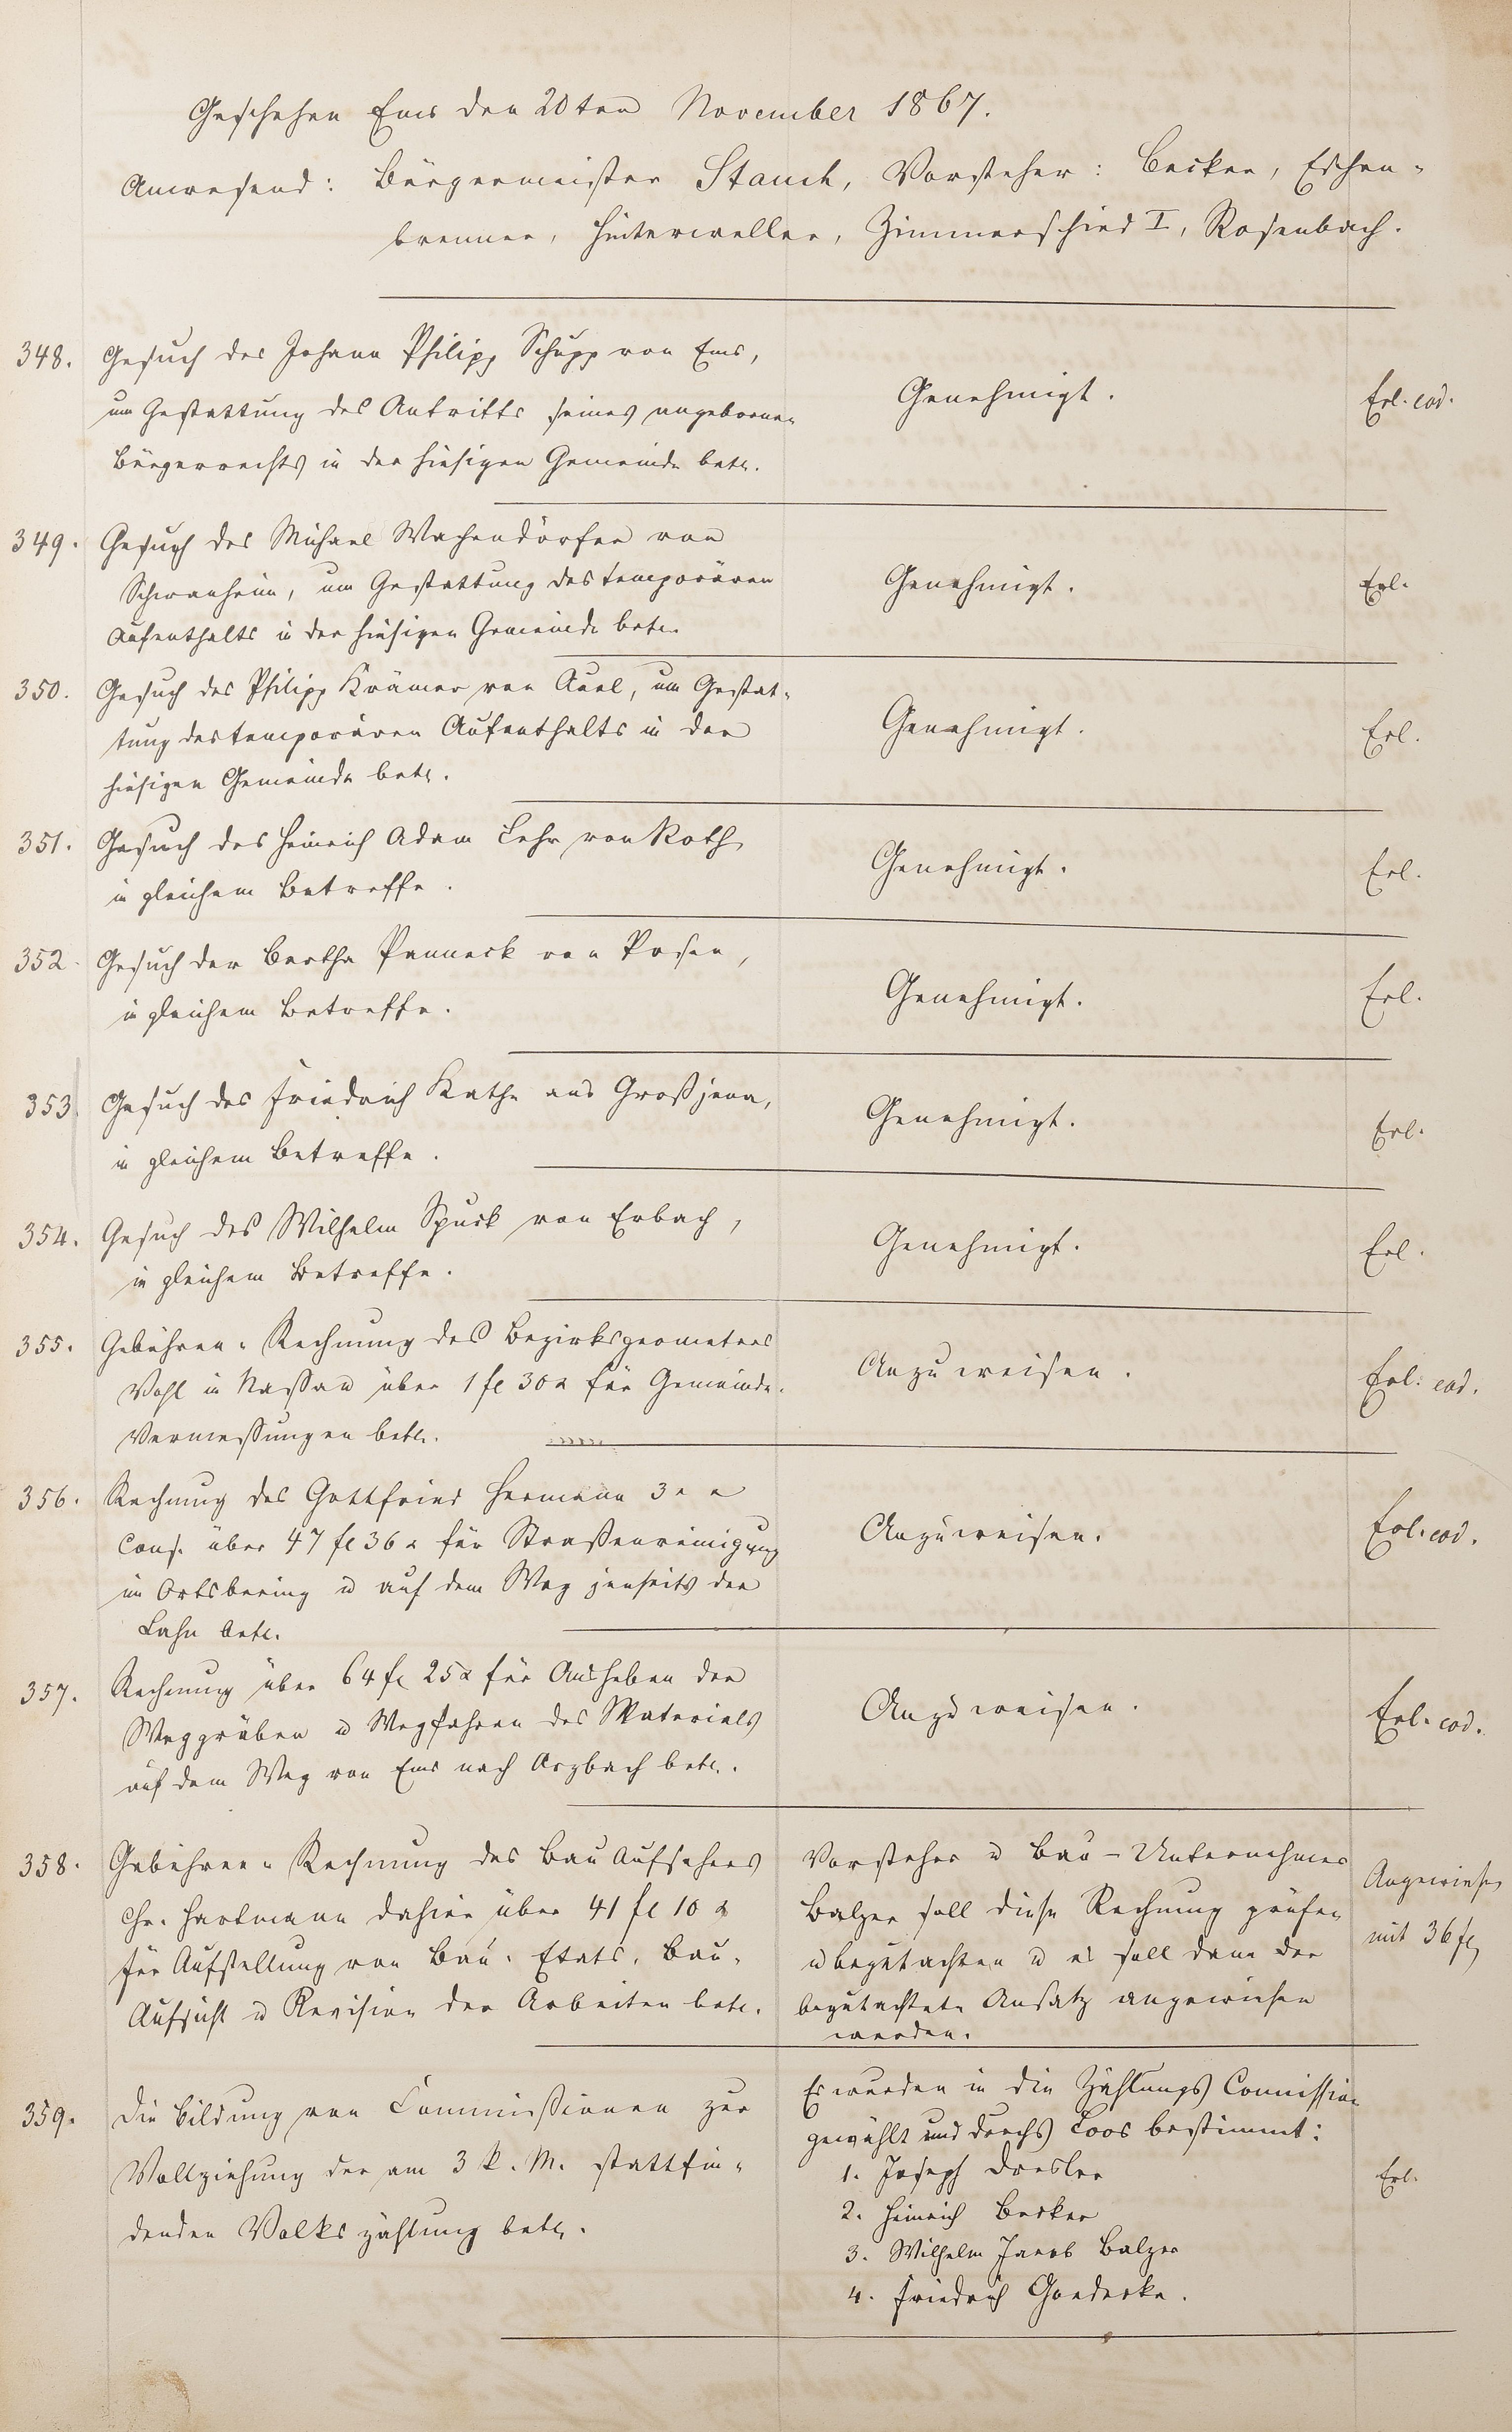 Geschehen Ems den 20ten November 1867.
Anwesend: Bürgermeister Stauch, Vorsteher: Becker, Eschen-
brenner, Hinterweller, Zimmerschied I, Rosenbach.
348. Gesuch des Johann Philipp Schupp von Ems,
um Gestattung des Antritts seines angebornen
Bürgerrechts in der hiesigen Gemeinde betr.
Genehmigt.
Erl. eod.
349. Gesuch des Michael Wachendörfer von
Schwanheim, um Gestattung des temporären
Aufenthalts in der hiesigen Gemeinde betr.
Genehmigt.
Erl.
350. Gesuch des Philipp Krämer von Auel, um Gestat-
tung des temporären Aufenthalts in der
hiesigen Gemeinde betr.
Genehmigt.
Erl.
351. Gesuch des Heinrich Adam Lehr von Roth
in gleichem Betreffe.
Genehmigt.
Erl.
352. Gesuch der Bertha Panneck von Posen,
in gleichem Betreffe.
Genehmigt.
Erl.
353. Gesuch des Friedrich Kathe aus Großjena,
in gleichem Betreffe.
Genehmigt.
Erl.
354. Gesuch des Wilhelm Spuck von Erbach,
in gleichem Betreffe.
Genehmigt.
Erl.
355. Gebühren-Rechnung des Bezirksgeometers
Vohl in Nassau über 1 fl 30 x für Gemeinde-
Vermessungen betr.
Anzuweisen.
Erl. eod.
356. Rechnung des Gottfried Hermann 3r u
Cons. über 47 fl 36 x für Straßenreinigung
im Ortsbering u auf dem Weg jenseits der
Lahn betr.
Anzuweisen.
Erl. eod.
357. Rechnung über 64 fl 25 x für Ausheben der
Weggräben u Wegfahren des Materials
auf dem Weg von Ems nach Arzbach betr.
Anzuweisen.
Erl. eod.
358. Gebühren-Rechnung des Bau Aufsehers
Chr. Hartmann dahier über 41 fl 10 x
für Aufstellung von Bau-Etats, Bau-
Aufsicht u Revision der Arbeiten betr.
Vorsteher u Bau-Unternehmer
Balzer soll diese Rechnung prüfen
u begutachten u es soll dann der
begutachtete Ansatz angewiesen
werden.
Angewiesen
mit 36 fl
359. Die Bildung von Commissionen zur
Vollziehung der am 3 k. M. stattfin-
denden Volkszählung betr.
Es wurden in die Zählungs Commission
gewählt und durchs Loos bestimmt:
1. Joseph Doesler
2. Heinrich Becker
3. Wilhelm Jacob Balzer
4. Friedrich Goedecke.
Erl.